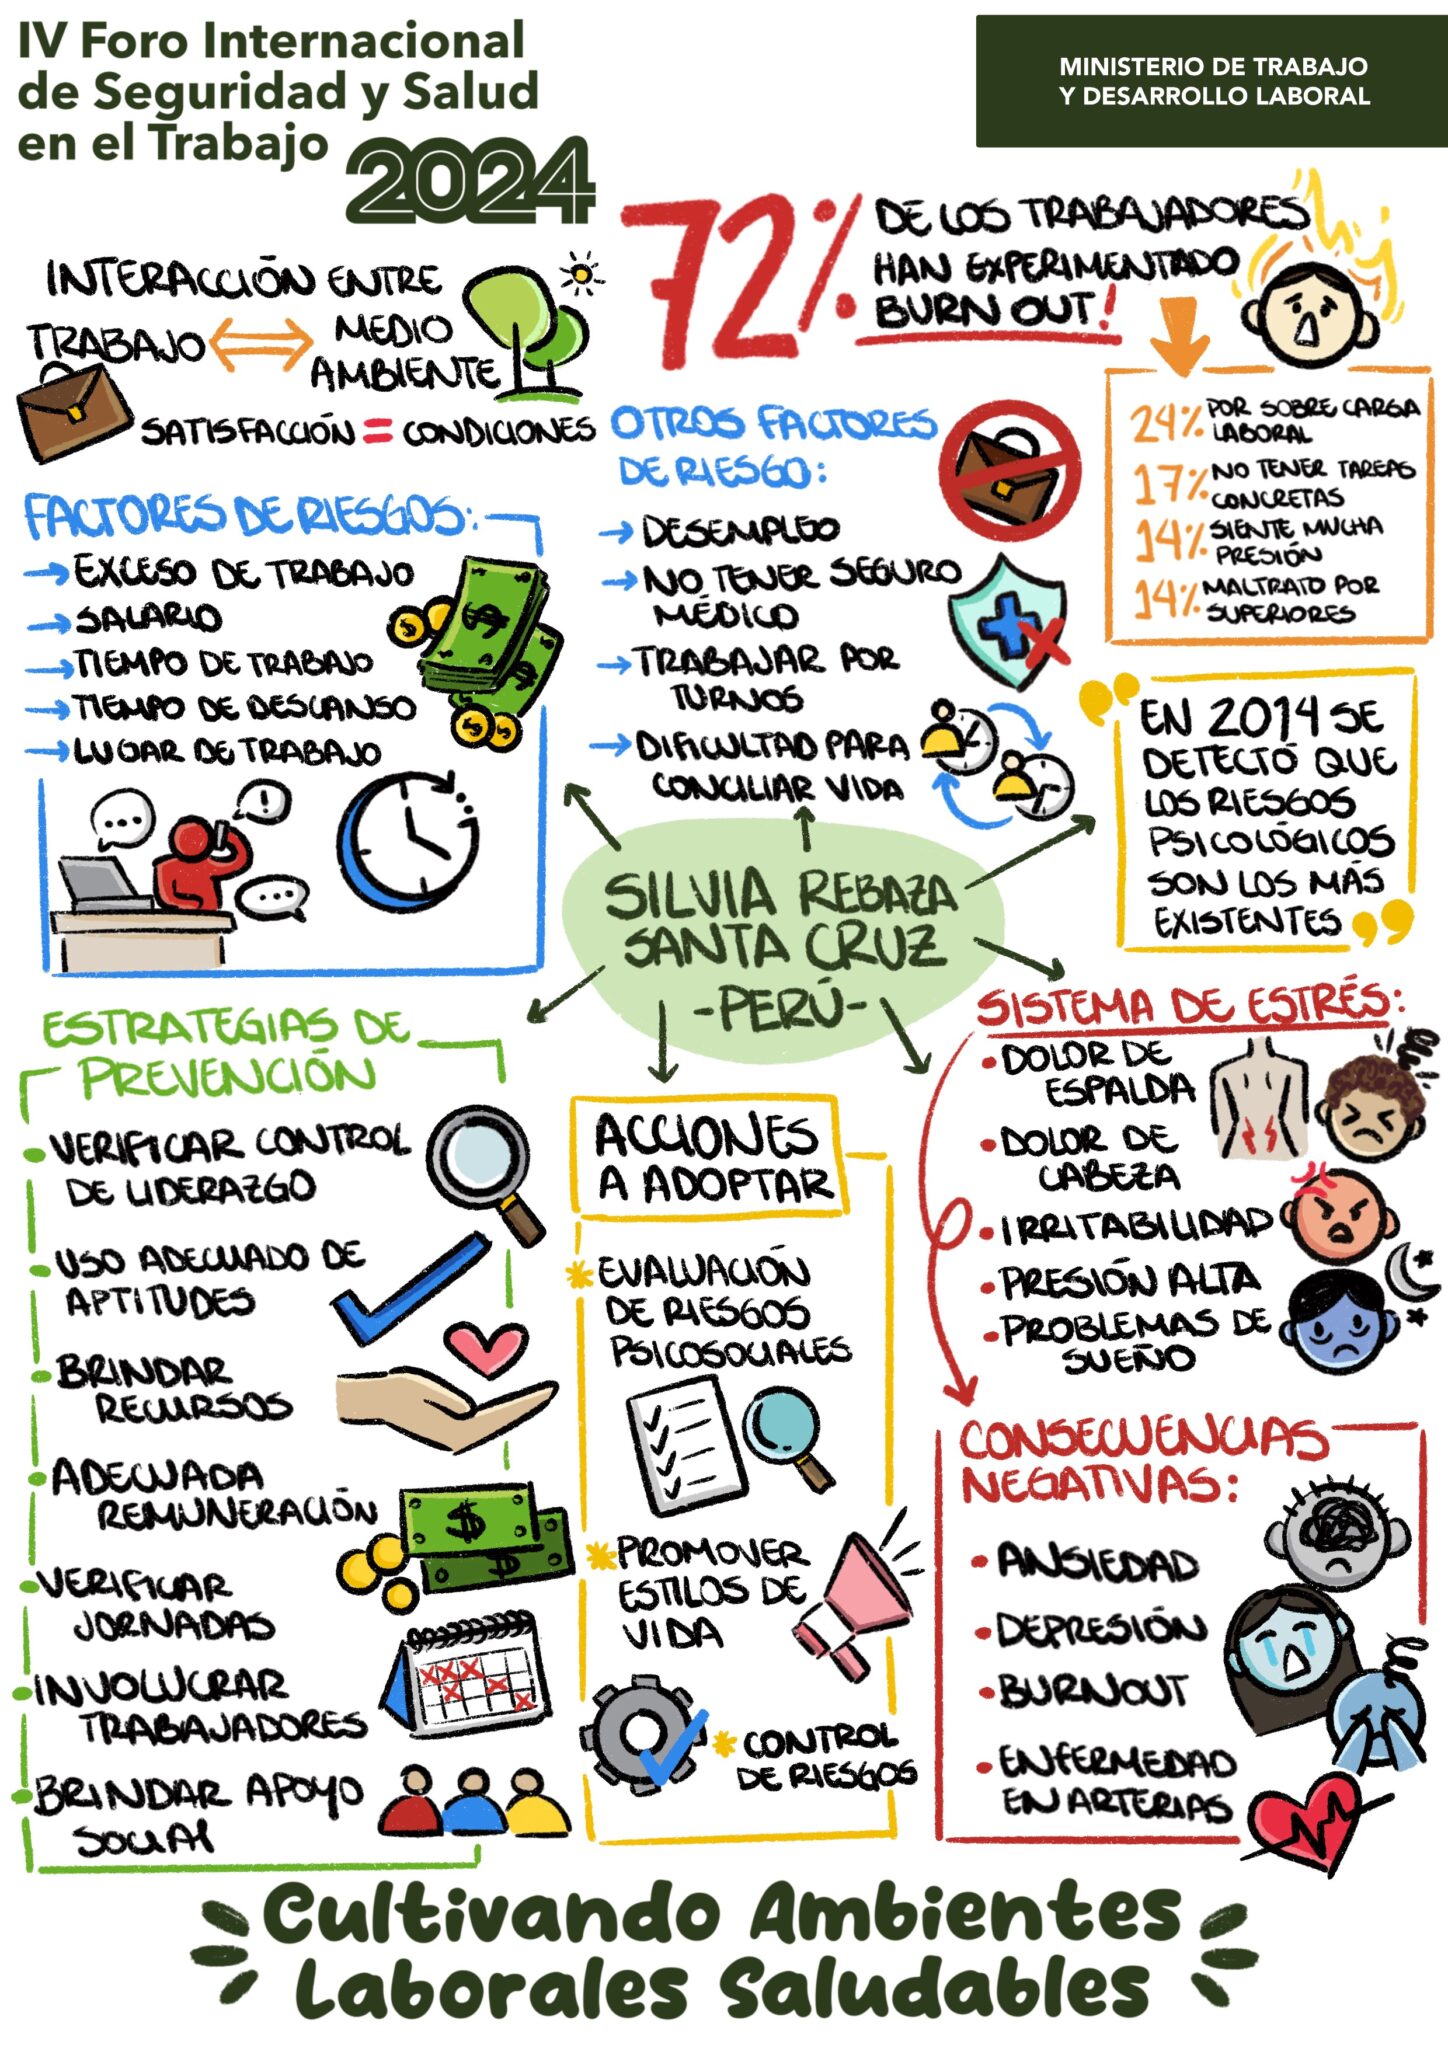 IV Foro Internacional
de Seguridad y Salud
en el Trabajo
2024
MINISTERIO DE TRABAJO
Y DESARROLLO LABORAL
INTERACCIÓN ENTRE
TRABAJO
MEDIO
AMBIENTE
SATISFACCIÓN = CONDICIONES
72%
DE LOS TRABAJADORES
HAN EXPERIMENTADO
BURN OUT!
24% POR SOBRE CARGA
LABORAL
17% NO TENER TAREAS
CONCRETAS
14% SIENTE MUCHA
PRESIÓN
14% MALTRATO POR
SUPERIORES
FACTORES DE RIESGOS:
→ EXCESO DE TRABAJO
→ SALARIO
→ TIEMPO DE TRABAJO
→ TIEMPO DE DESCANSO
→ LUGAR DE TRABAJO
OTROS FACTORES
DE RIESGO:
→ DESEMPLEO
→ NO TENER SEGURO
MÉDICO
→ TRABAJAR POR
TURNOS
→ DIFICULTAD PARA
CONCILIAR VIDA
"EN 2014 SE
DETECTÓ QUE
LOS RIESGOS
PSICOLÓGICOS
SON LOS MÁS
EXISTENTES"
SILVIA REBAZA
SANTA CRUZ
-PERÚ-
ESTRATEGIAS DE
PREVENCIÓN
• VERIFICAR CONTROL
DE LIDERAZGO
• USO ADECUADO DE
APTITUDES
• BRINDAR
RECURSOS
• ADECUADA
REMUNERACIÓN
• VERIFICAR
JORNADAS
• INVOLUCRAR
TRABAJADORES
• BRINDAR APOYO
SOCIAL
ACCIONES
A ADOPTAR
* EVALUACIÓN
DE RIESGOS
PSICOSOCIALES
* PROMOVER
ESTILOS DE
VIDA
* CONTROL
DE RIESGOS
SISTEMA DE ESTRÉS:
• DOLOR DE
ESPALDA
• DOLOR DE
CABEZA
• IRRITABILIDAD
• PRESIÓN ALTA
• PROBLEMAS DE
SUEÑO
CONSECUENCIAS
NEGATIVAS:
• ANSIEDAD
• DEPRESIÓN
• BURNOUT
• ENFERMEDAD
EN ARTERIAS
Cultivando Ambientes
Laborales Saludables